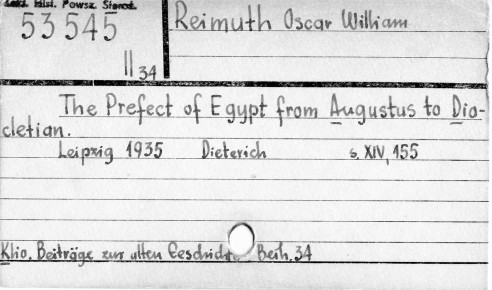 Zakł. Hist. Powsz. Staroż.
53545
II 34
Reimuth Oscar William
The Prefect of Egypt from Augustus to Dio-
cletian.
Leipzig 1935 Dieterich s. XIV, 155
Klio, Beiträge zur alten Geschichte Beih. 34